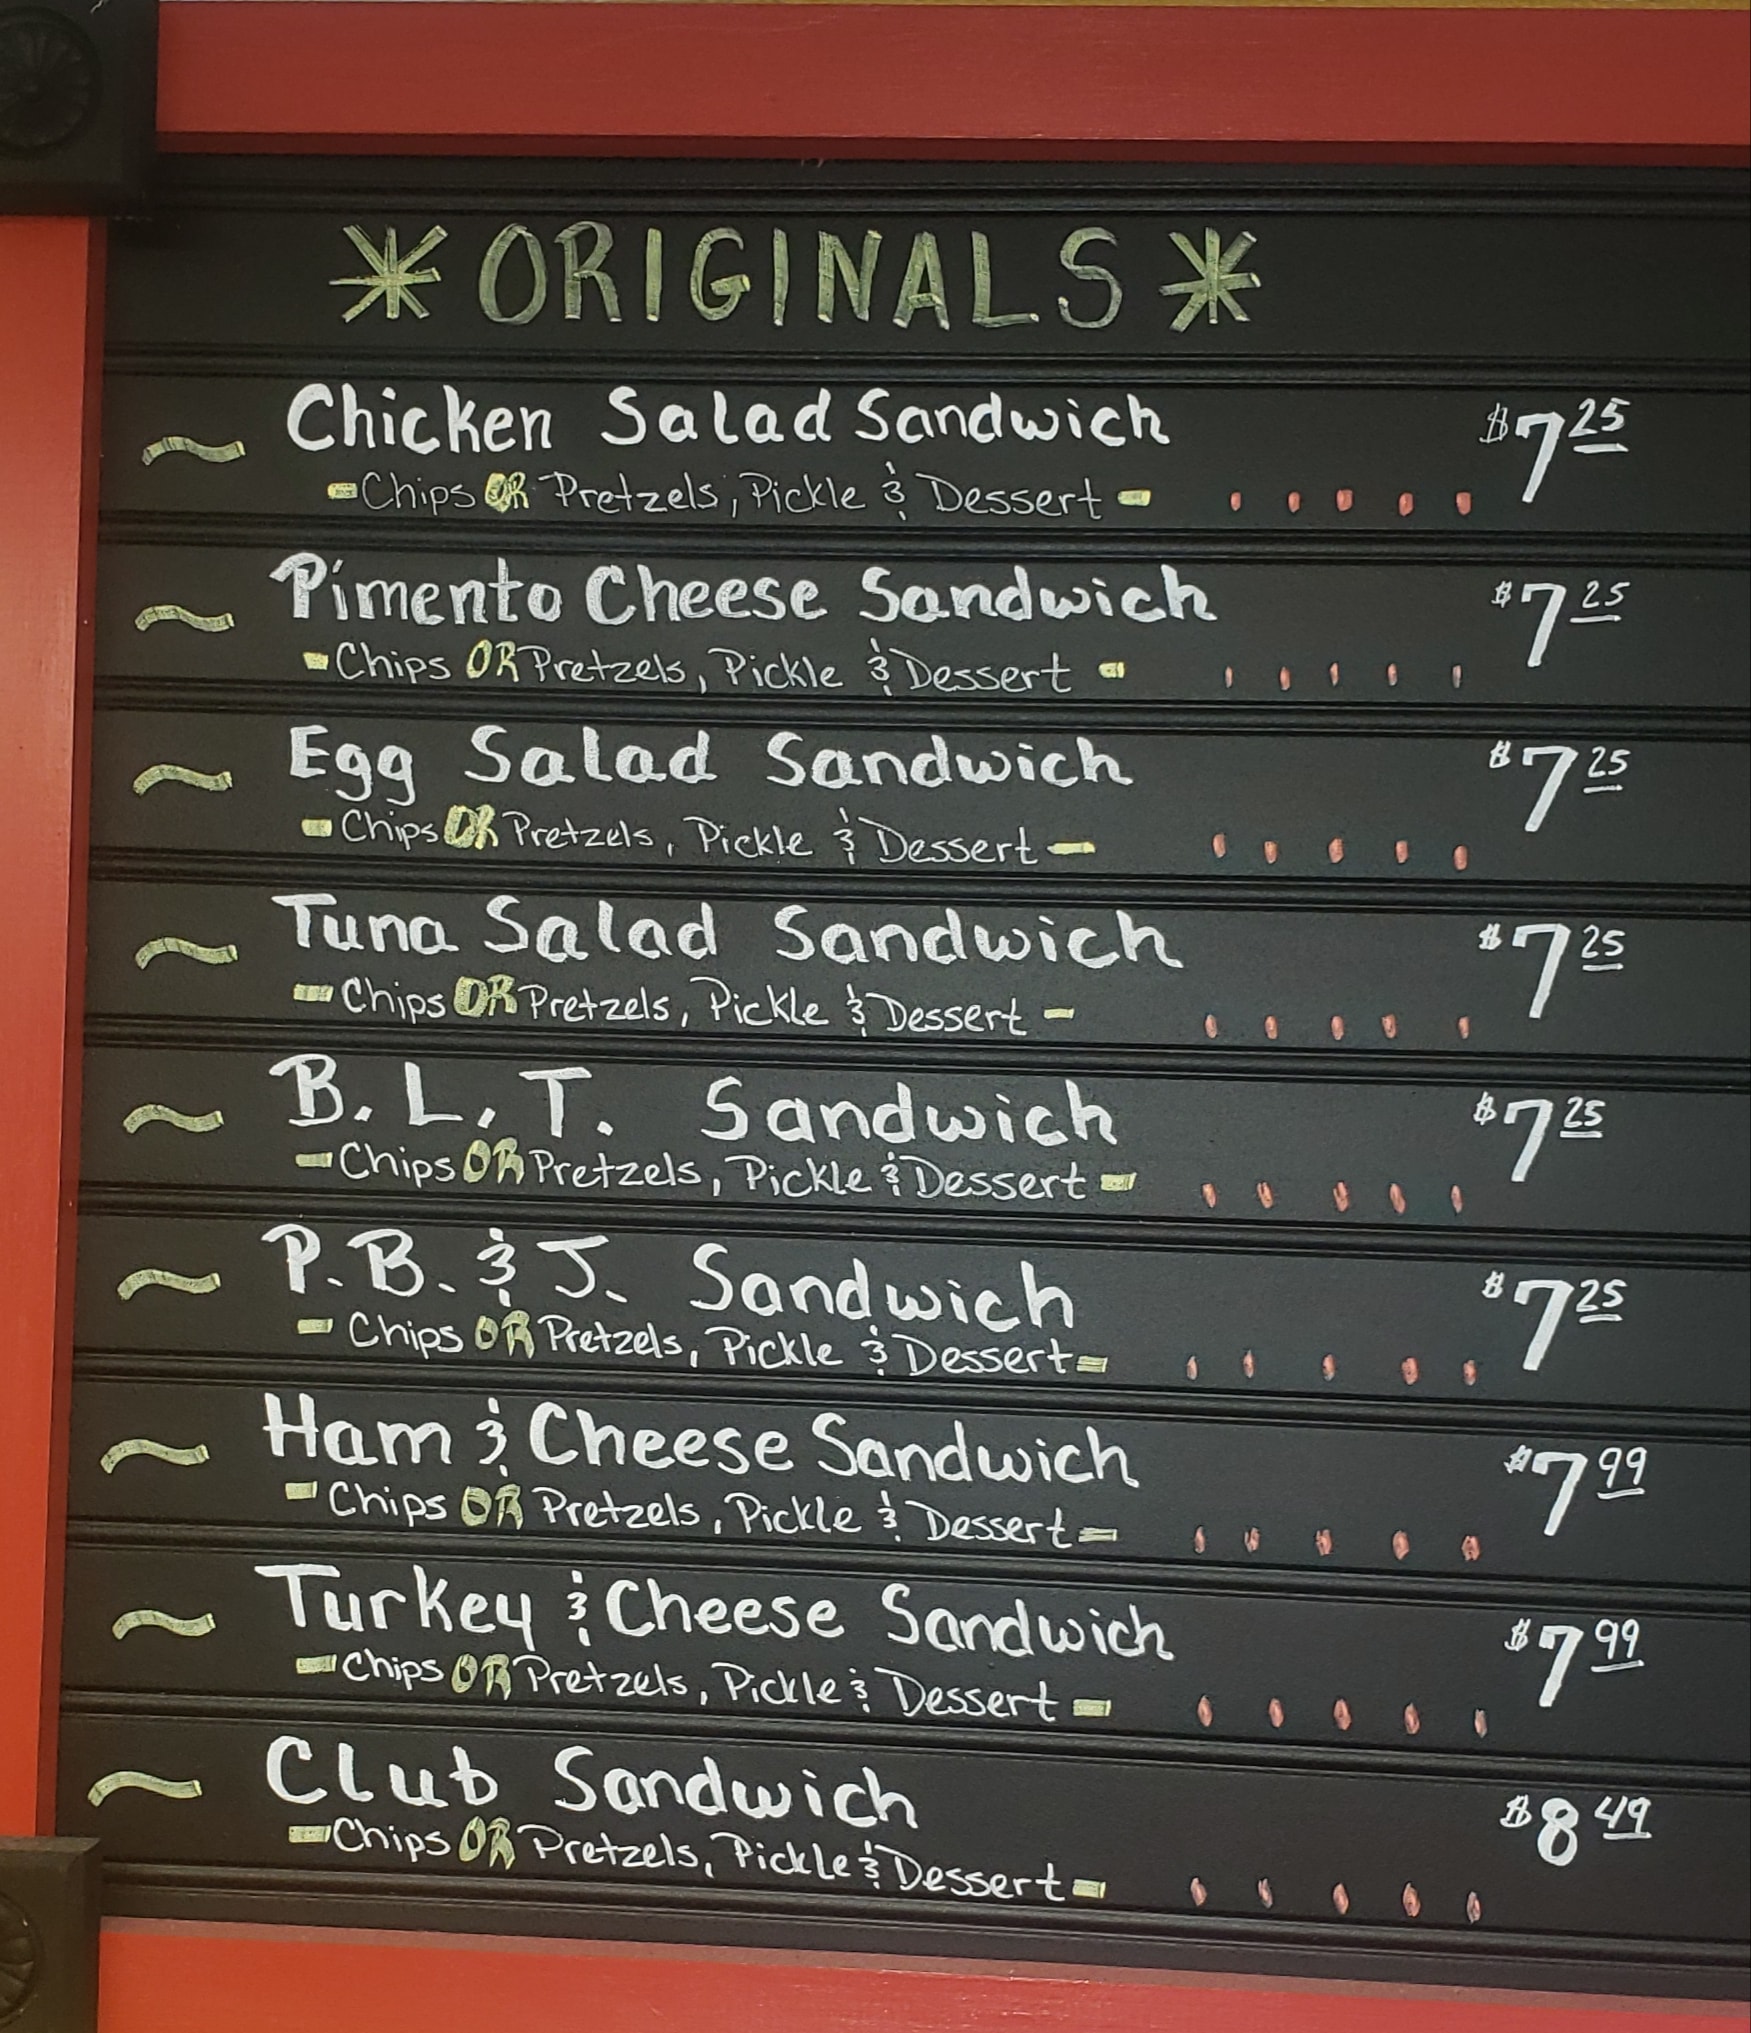 * ORIGINALS *
~ Chicken Salad Sandwich $7.25
- Chips OR Pretzels, Pickle & Dessert - . . . . .
~ Pimento Cheese Sandwich $7.25
- Chips OR Pretzels, Pickle & Dessert - . . . . .
~ Egg Salad Sandwich $7.25
- Chips OR Pretzels, Pickle & Dessert - . . . . .
~ Tuna Salad Sandwich $7.25
- Chips OR Pretzels, Pickle & Dessert - . . . . .
~ B.L.T. Sandwich $7.25
- Chips OR Pretzels, Pickle & Dessert - . . . . .
~ P.B. & J. Sandwich $7.25
- Chips OR Pretzels, Pickle & Dessert - . . . . .
~ Ham & Cheese Sandwich $7.99
- Chips OR Pretzels, Pickle & Dessert - . . . . .
~ Turkey & Cheese Sandwich $7.99
- Chips OR Pretzels, Pickle & Dessert - . . . . .
~ Club Sandwich $8.49
- Chips OR Pretzels, Pickle & Dessert - . . . . .